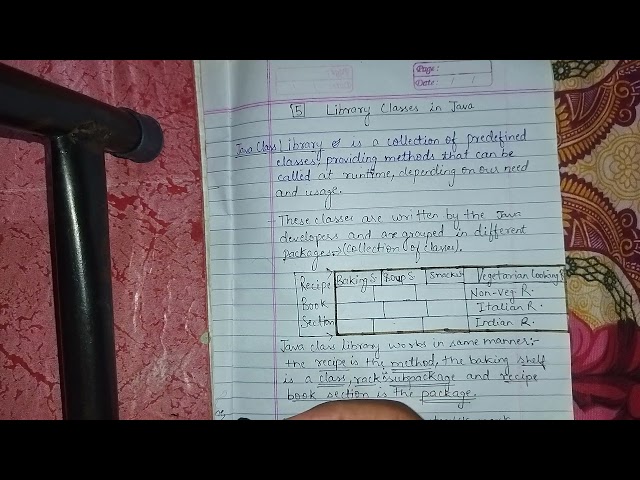 Page:
Date: / /
5 Library Classes in Java
Java Class Library is a collection of predefined
classes, providing methods that can be
called at runtime, depending on our need
and usage.
These classes are written by the Java
developers and are grouped in different
packages (collection of classes).
Recipe Baking S Soup S Snacks Vegetarian Cooking
Book Non-Veg R.
Italian R.
Section Indian R.
Java class library works in same manner:-
the recipe is the method, the baking shelf
is a class, rack:subpackage and recipe
book section is the package.